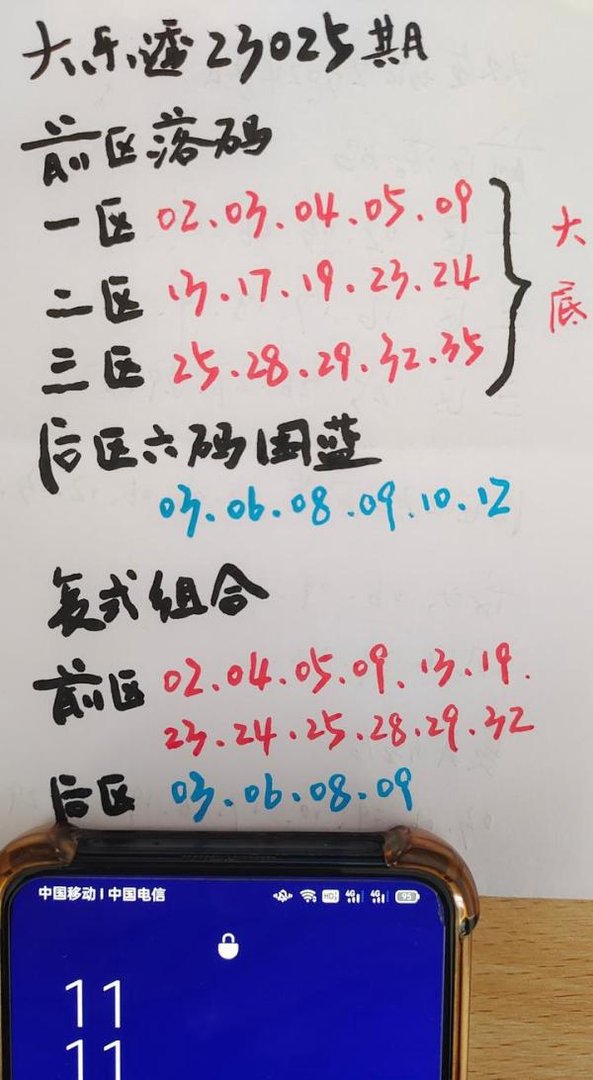 大乐透23025期
前区落码
一区 02.03.04.05.09
二区 13.17.19.23.24
三区 25.28.29.32.35
大底
后区六码围蓝
03.06.08.09.10.12
复式组合
前区 02.04.05.09.13.19.
23.24.25.28.29.32
后区 03.06.08.09
中国移动 | 中国电信
HD 4G 4G 95
11
11